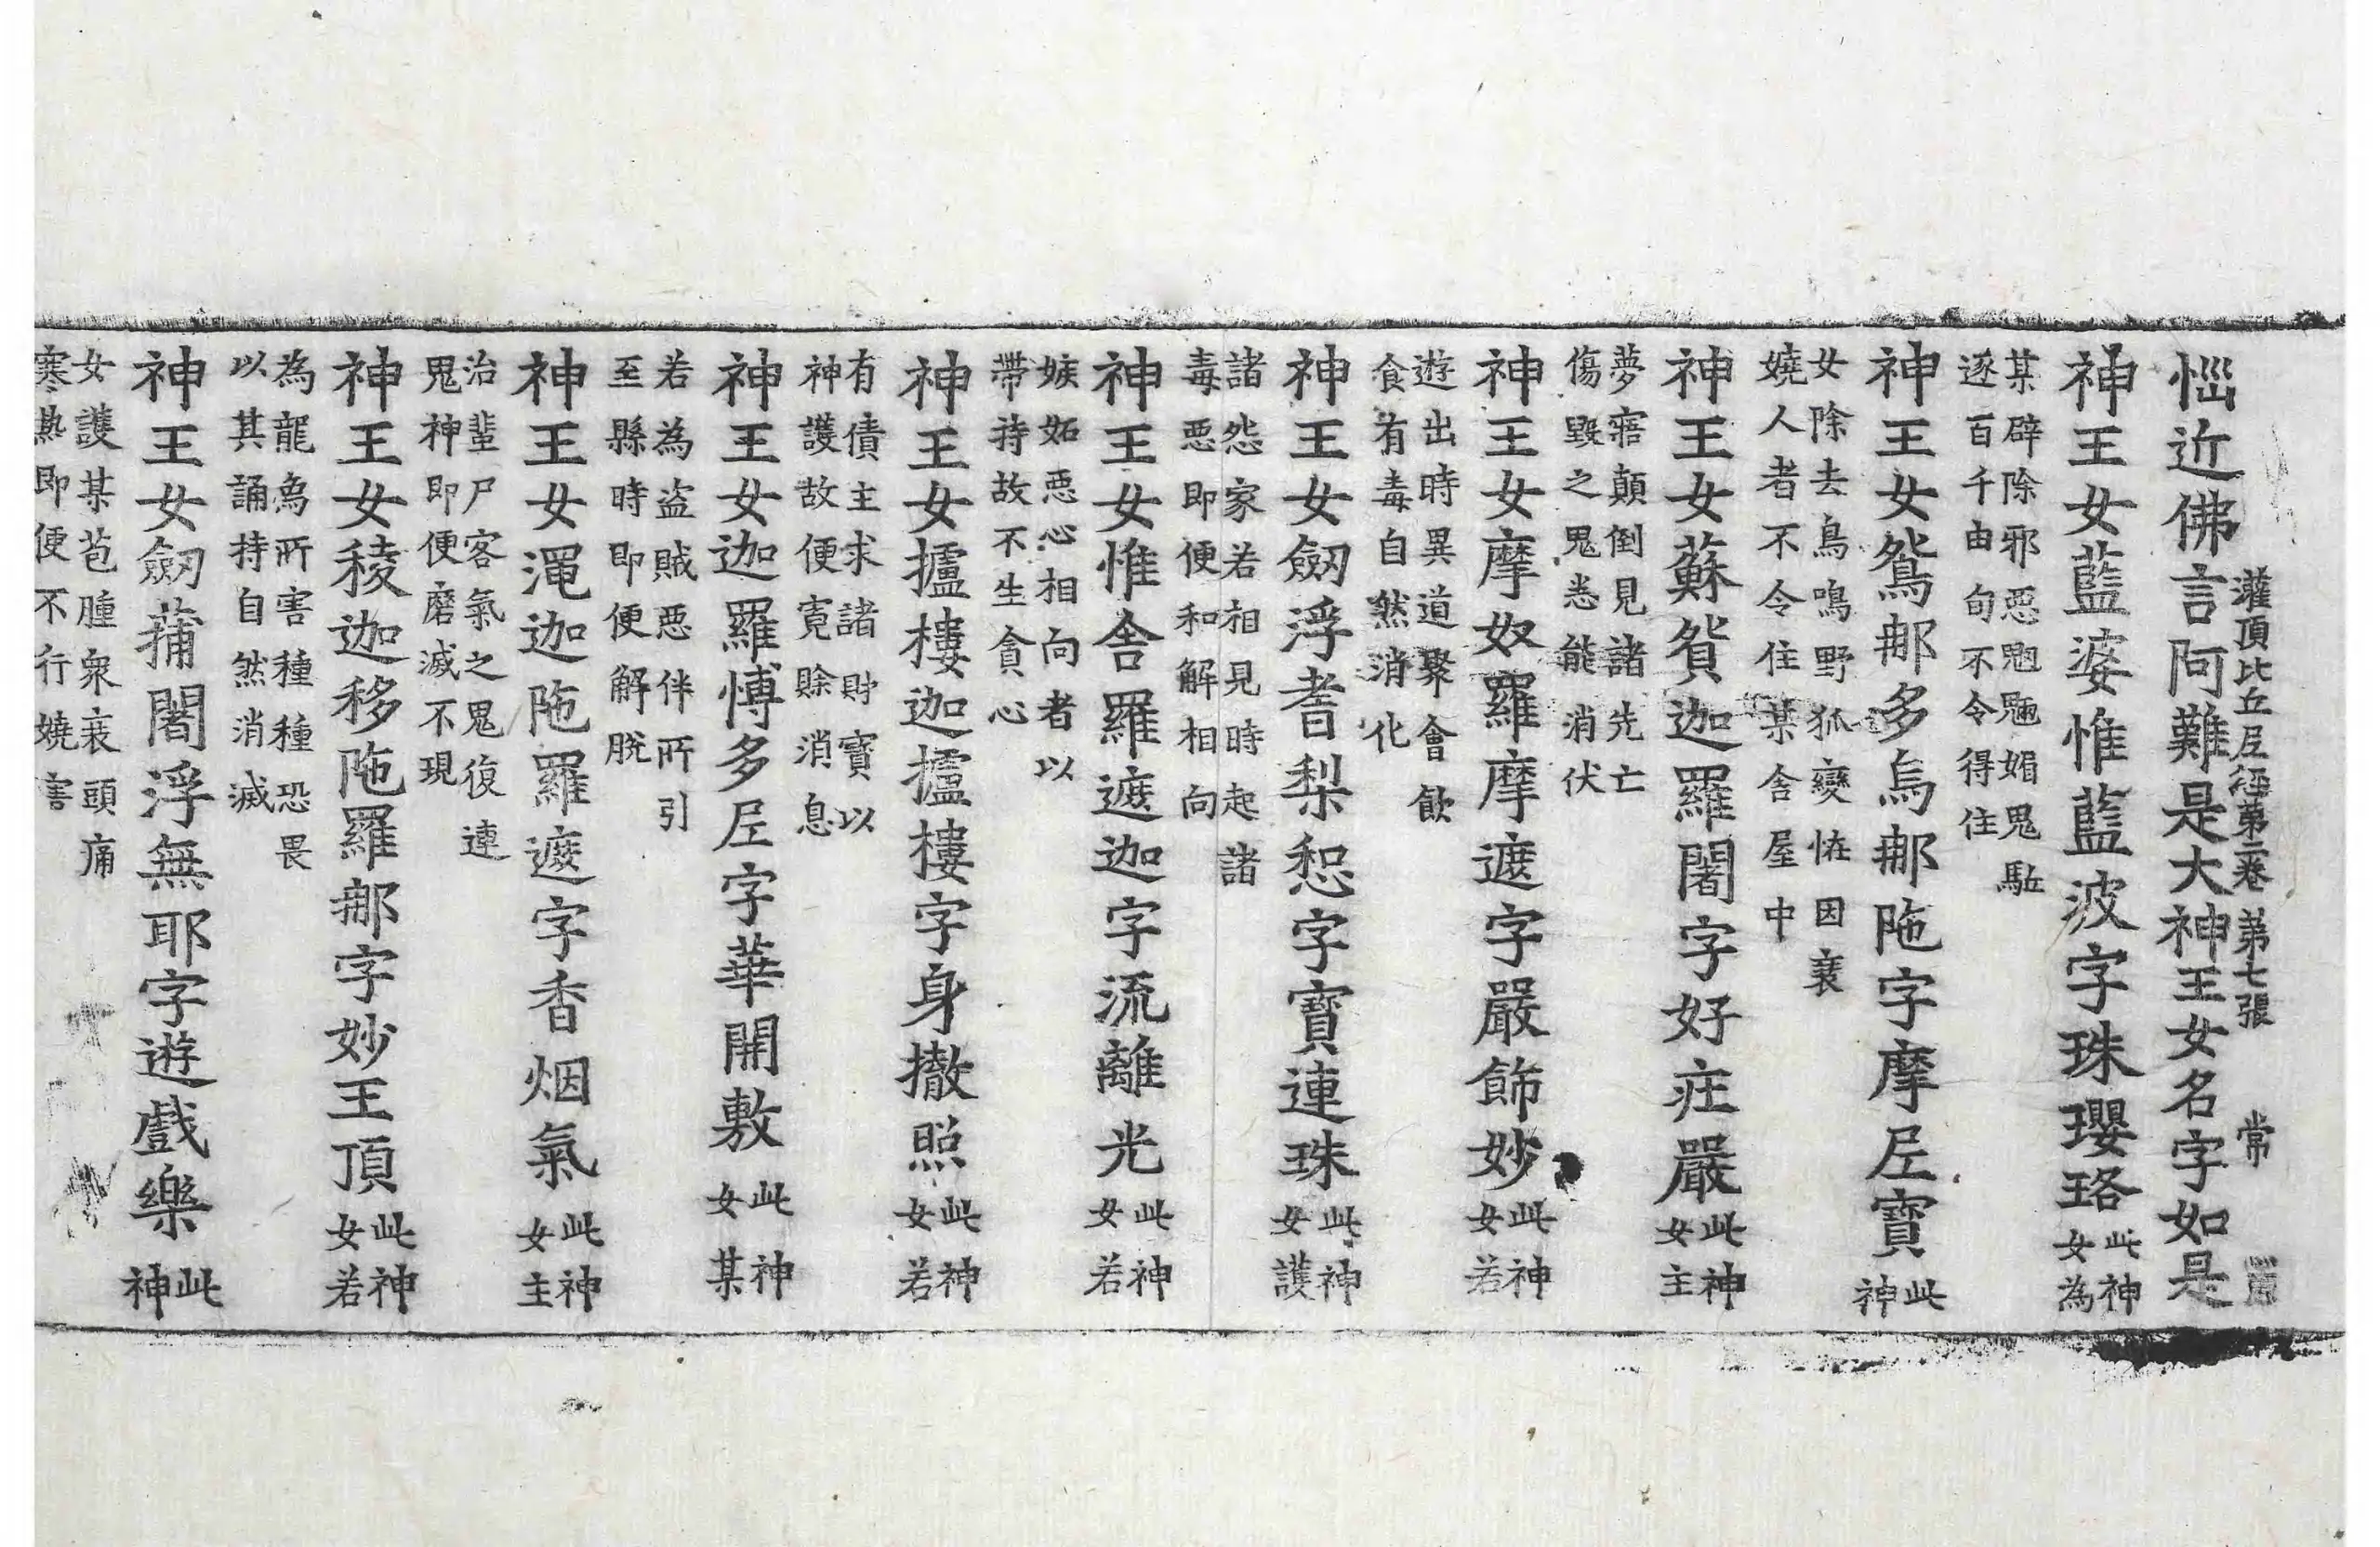 灌頂比丘尼經第二卷 第七張 常
惱近佛言阿難是大神王女名字如是
神王女藍婆惟藍波字珠瓔珞此神女為
某辟除邪惡魍魎媚鬼駈
逐百千由旬不令得住
神王女鴛𨚗多烏𨚗陁字摩尼寶此神
女除去鳥鳴野狐變恠因衰
嬈人者不令住某舍屋中
神王女蘇貲迦羅闍字好庄嚴此神女主
夢寤顛倒見諸先亡
傷毀之鬼悉能消伏
神王女摩奴羅摩遮字嚴飾妙此神女若
遊出時異道聚會飲
食有毒自然消化
神王女劒浮耆梨惒字寶連珠此神女護
諸怨家若相見時起諸
毒惡即便和解相向
神王女惟舍羅遮迦字流離光此神女若
嫉妬惡心相向者以
帶持故不生貪心
神王女攎樓迦攎樓字身撤照此神女若
有債主求諸財寶以
神護故便寬賒消息
神王女迦羅愽多尼字華開敷此神女某
若為盜賊惡伴所引
至縣時即便解脫
神王女渑迦陁羅遮字香烟氣此神女主
治蜚尸客氣之鬼復連
鬼神即便磨滅不現
神王女稜迦移陁羅𨚗字妙王頂此神女若
為龍為所害種種恐畏
以其誦持自然消滅
神王女劒蒱闍浮無耶字遊戲樂此神
女護某苞腫衆衰頭痛
寒熱即便不行嬈害